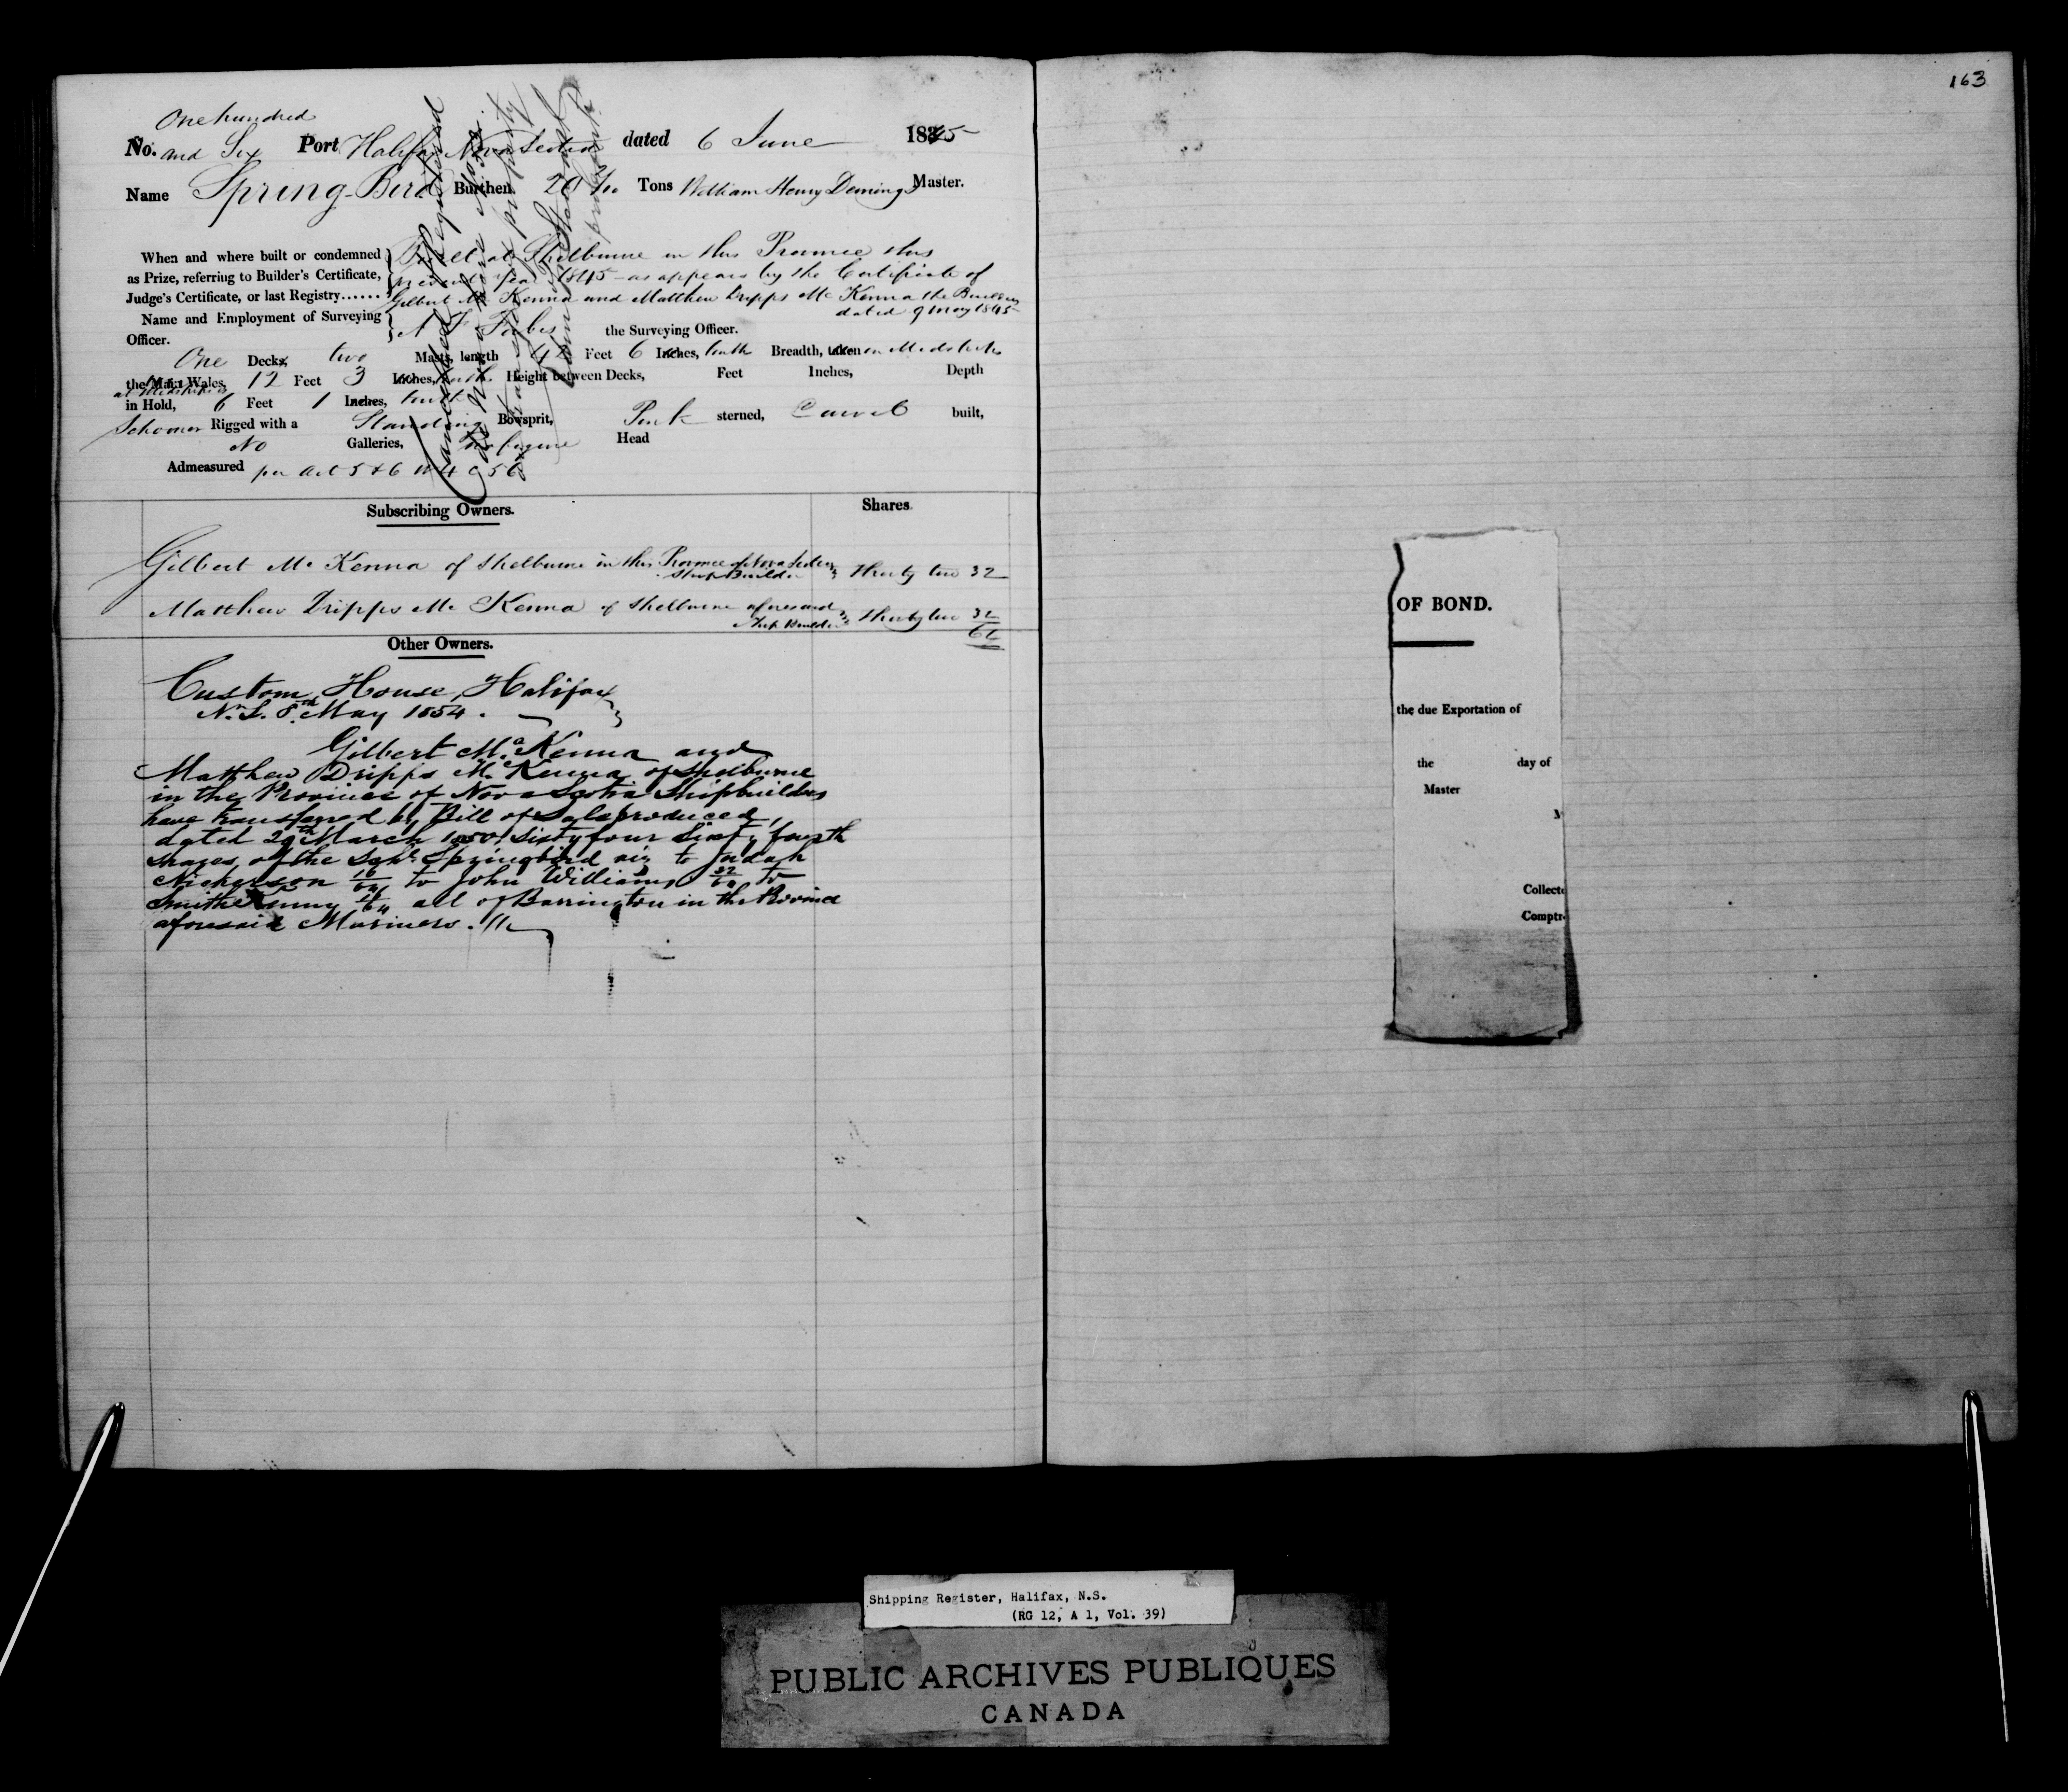 163
One hundred
No. and Six Port Halifax Nova Scotia dated 6 June 1845
Name Spring-Bird Burthen 20 Tons William Henry Deming Master.
When and where built or condemned
as Prize, referring to Builder's Certificate,
Judge's Certificate, or last Registry......
Built at Shelburne in this Province this
present year 1845 as appears by the Certificate of
Gilbert Mc Kenna and Matthew Dripps Mc Kenna the Builders
dated 9 May 1845
Name and Employment of Surveying
Officer.
Forbes the Surveying Officer.
One Decks, two Masts, length 42 Feet 6 Inches, tenths Breadth, taken in Midships
the Main Wales, 12 Feet 3 Inches, tenths Height between Decks, Feet Inches, Depth
at Midships
in Hold, 6 Feet 1 Inches, tenth
Schooner Rigged with a Standing Bowsprit, Pink sterned, Carvel built,
No Galleries, No figure Head
Admeasured per Act 5 & 6 W 4 C 56
Cancelled
Subscribing Owners. Shares.
Gilbert Mc Kenna of Shelburne in this Province of Nova Scotia
Ship Builder Thirty two 32
Matthew Dripps Mc Kenna of Shelburne aforesaid
Ship Builder Thirty two 32
64
Other Owners.
Custom House, Halifax
N.S. 8th May 1854.
Gilbert Mc Kenna and
Matthew Dripps Mc Kenna of Shelburne
in the Province of Nova Scotia Shipbuilders
have transferred by Bill of Sale produced,
dated 29th March 1850 Sixty four Sixty fourth
shares of the Schr Springbird viz to Judah
Nickerson 16/64 to John Williams 32/64 to
Smith Kenny 16/64 all of Barrington in the Province
aforesaid Mariners.
OF BOND.
the due Exportation of
the day of
Master
M
Collecto
Comptr
Shipping Register, Halifax, N.S.
(RG 12, A 1, Vol. 39)
PUBLIC ARCHIVES PUBLIQUES
CANADA